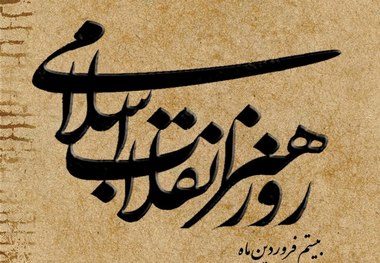 روز هنر انقلاب اسلامی
بیستم فروردین ماه